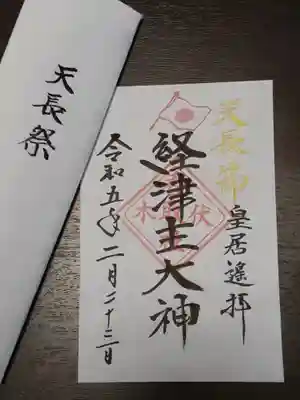 天長祭
天長祭
皇居遙拝
経津主大神
令和五年二月二十三日